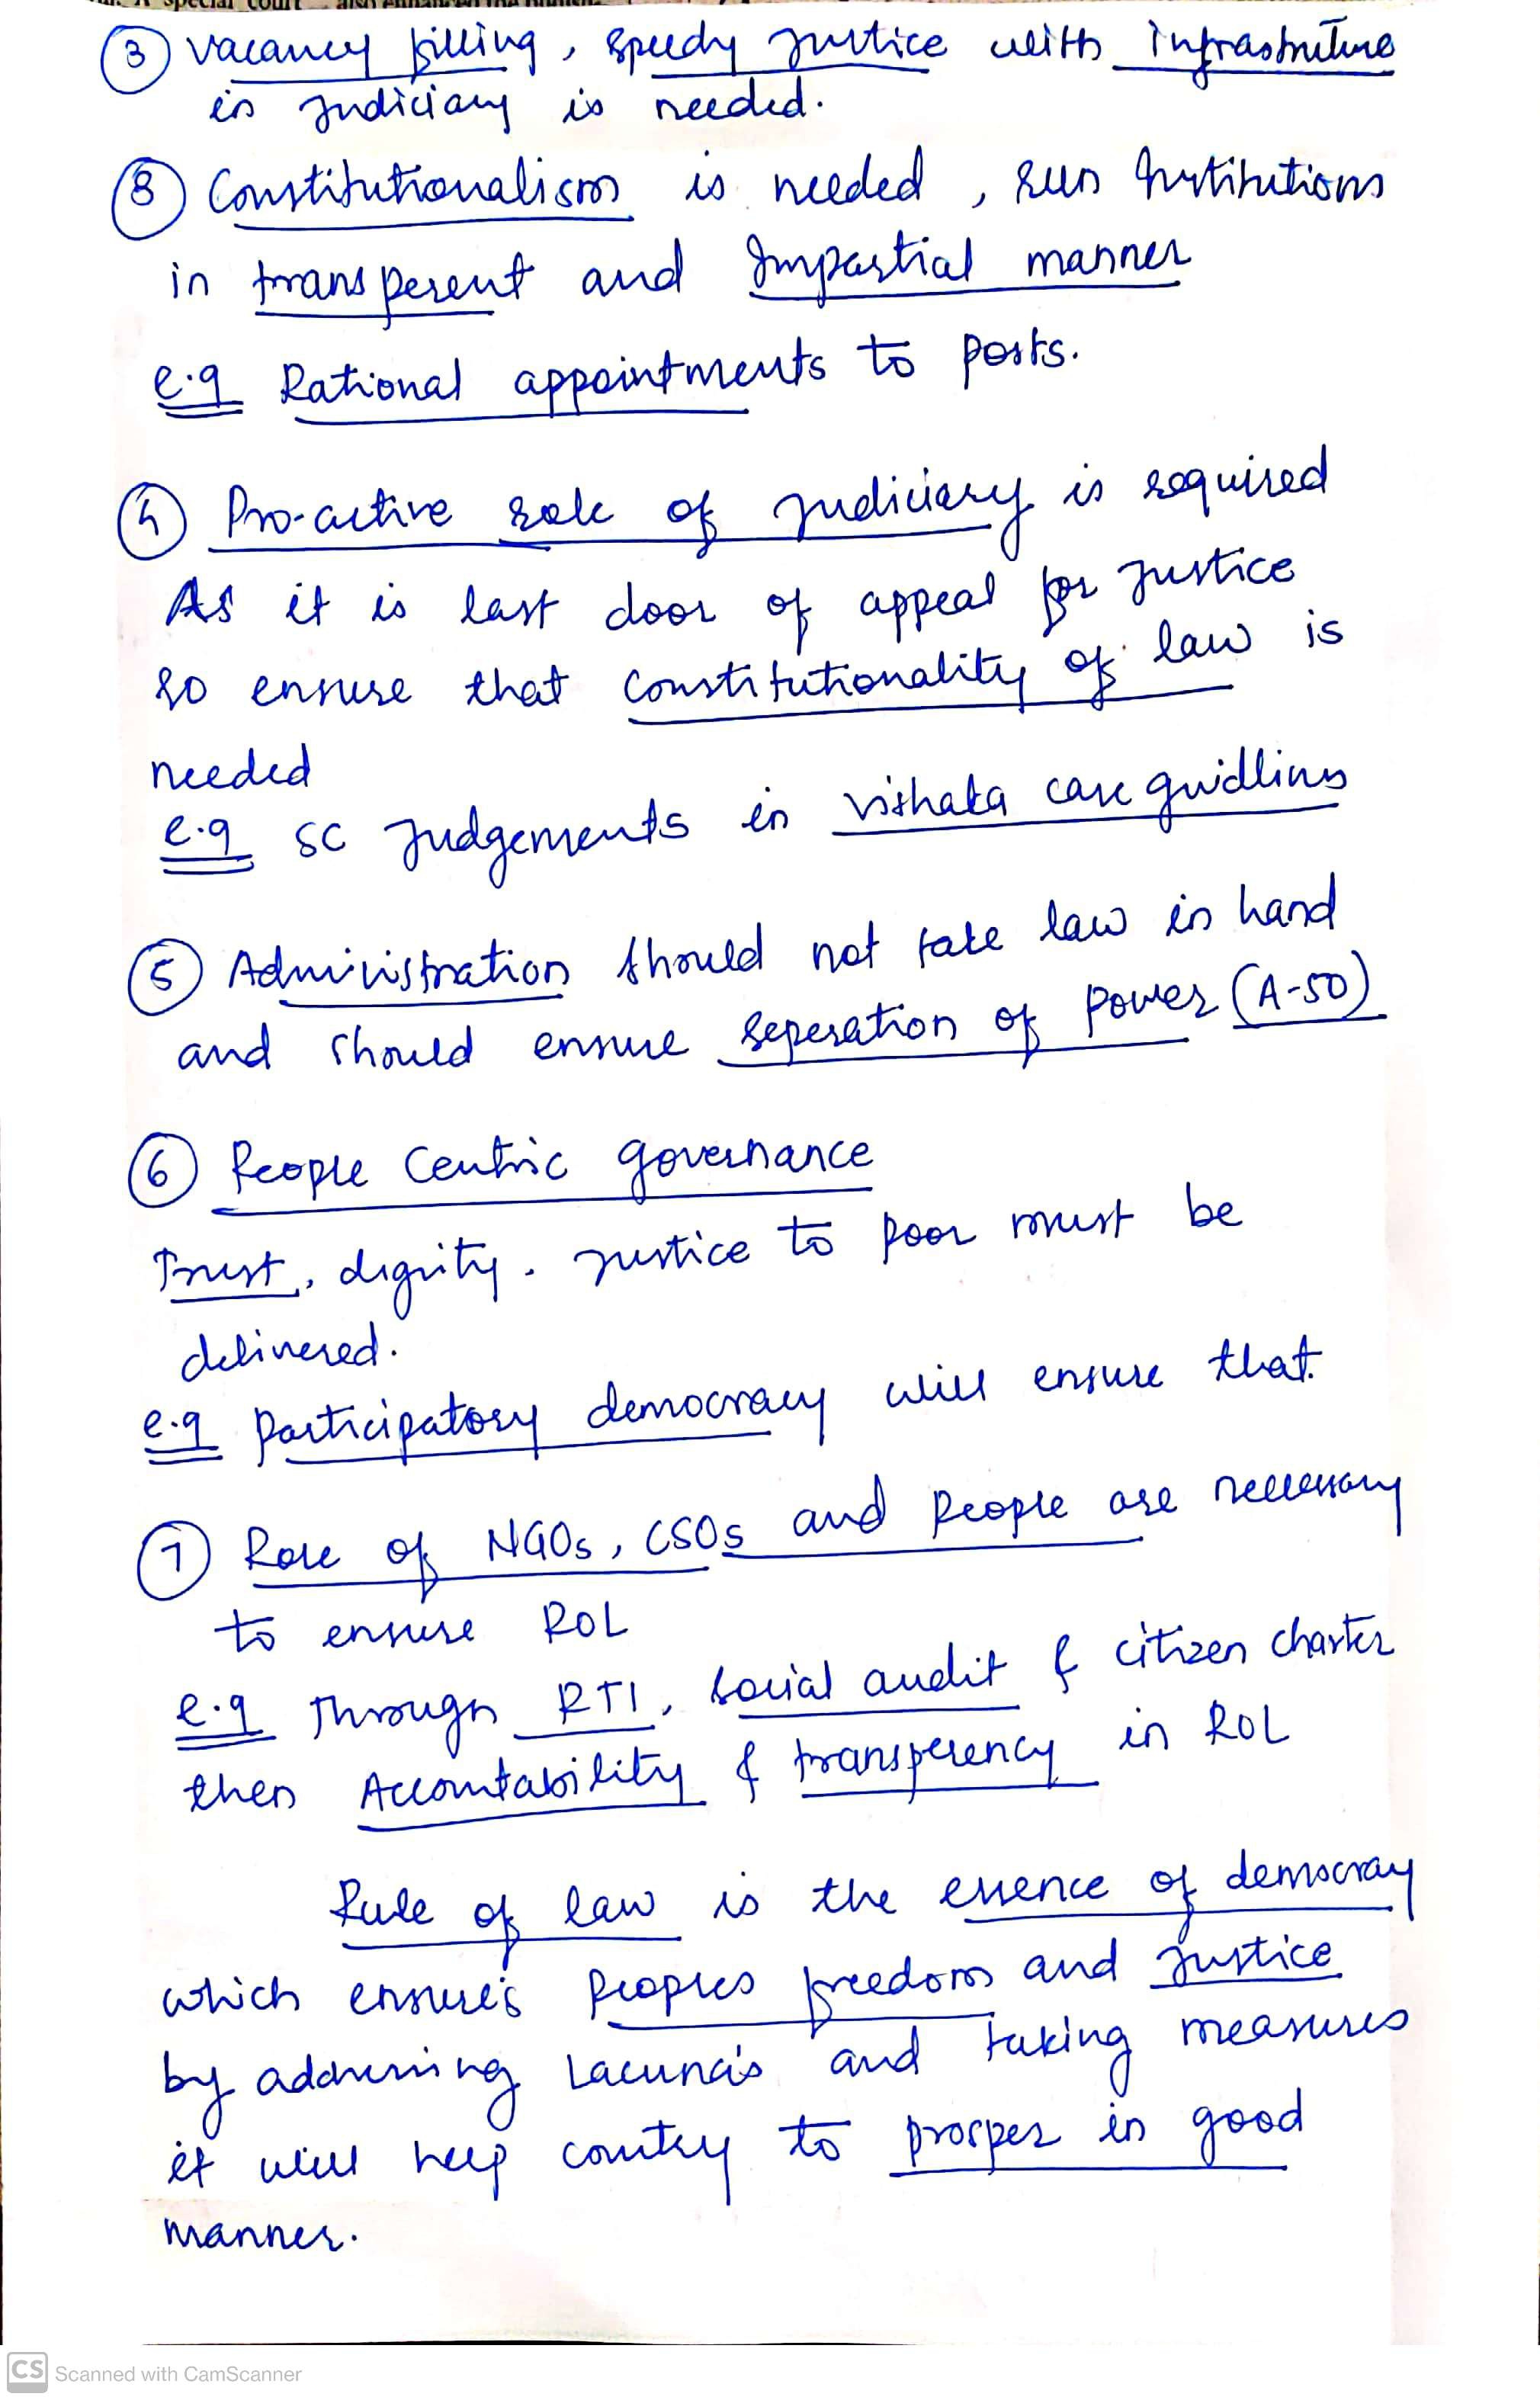 ③ vacancy filling, speedy Justice with infrastruture
in Judiciary is needed.
⑧ Constitutionalism is needed, run Institutions
in transperent and Impartial manner
e.g Rational appointments to posts.
④ Pro-active role of Judiciary is required
As it is last door of appeal for Justice
so ensure that Constitutionality of law is
needed
e.g SC Judgements in vishaka case guidlines
⑤ Administration should not take law in hand
and should ensure seperation of power (A-50)
⑥ People Centric governance
Trust, dignity. Justice to poor must be
delivered.
e.g Participatory democracy will ensure that.
⑦ Role of NGOs, CSOs and People are necessary
to ensure ROL
e.g Through RTI, social audit & citizen charter
then Accountability & transperency in ROL
Rule of law is the essence of democray
which ensure's Peoples freedom and Justice
by addressing Lacuna's and taking measures
it will help country to prosper in good
manner.
CS Scanned with CamScanner